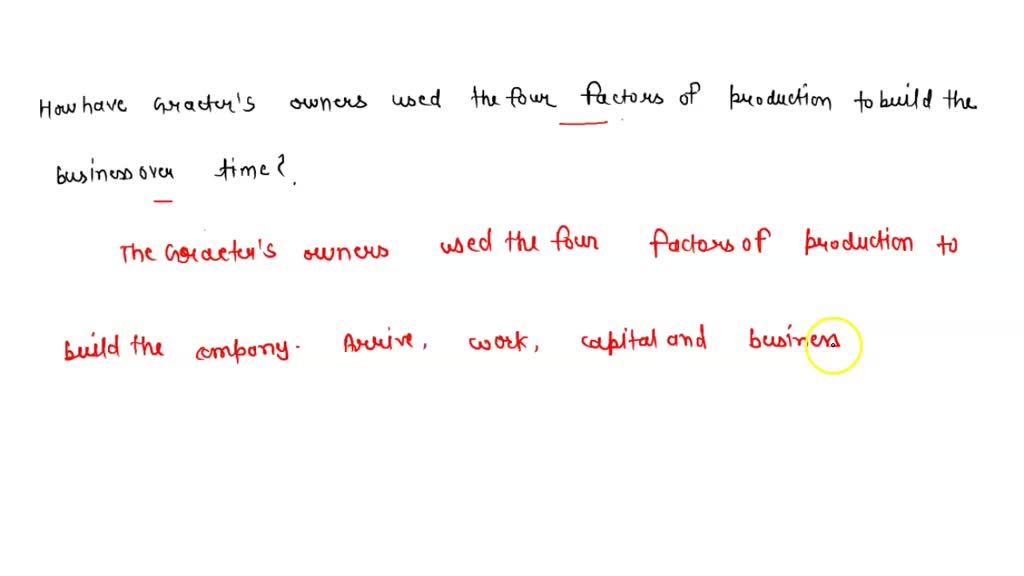 How have Graeter's owners used the four factors of production to build the
business over time?.
The Goraeter's owners used the four factors of production to
build the company. Arrive, work, capital and business